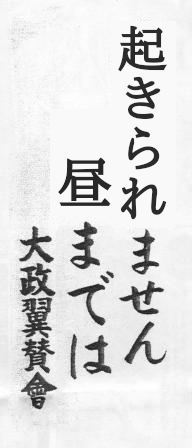 起きられません
昼までは
大政翼賛會